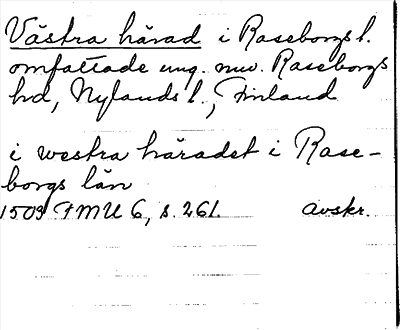 Västra härad i Raseborgs l.
omfattade ung. nuv. Raseborgs
hd, Nylands l., Finland
i westra häradet i Rase-
borgs län
1509 FMU 6, s. 261. avskr.